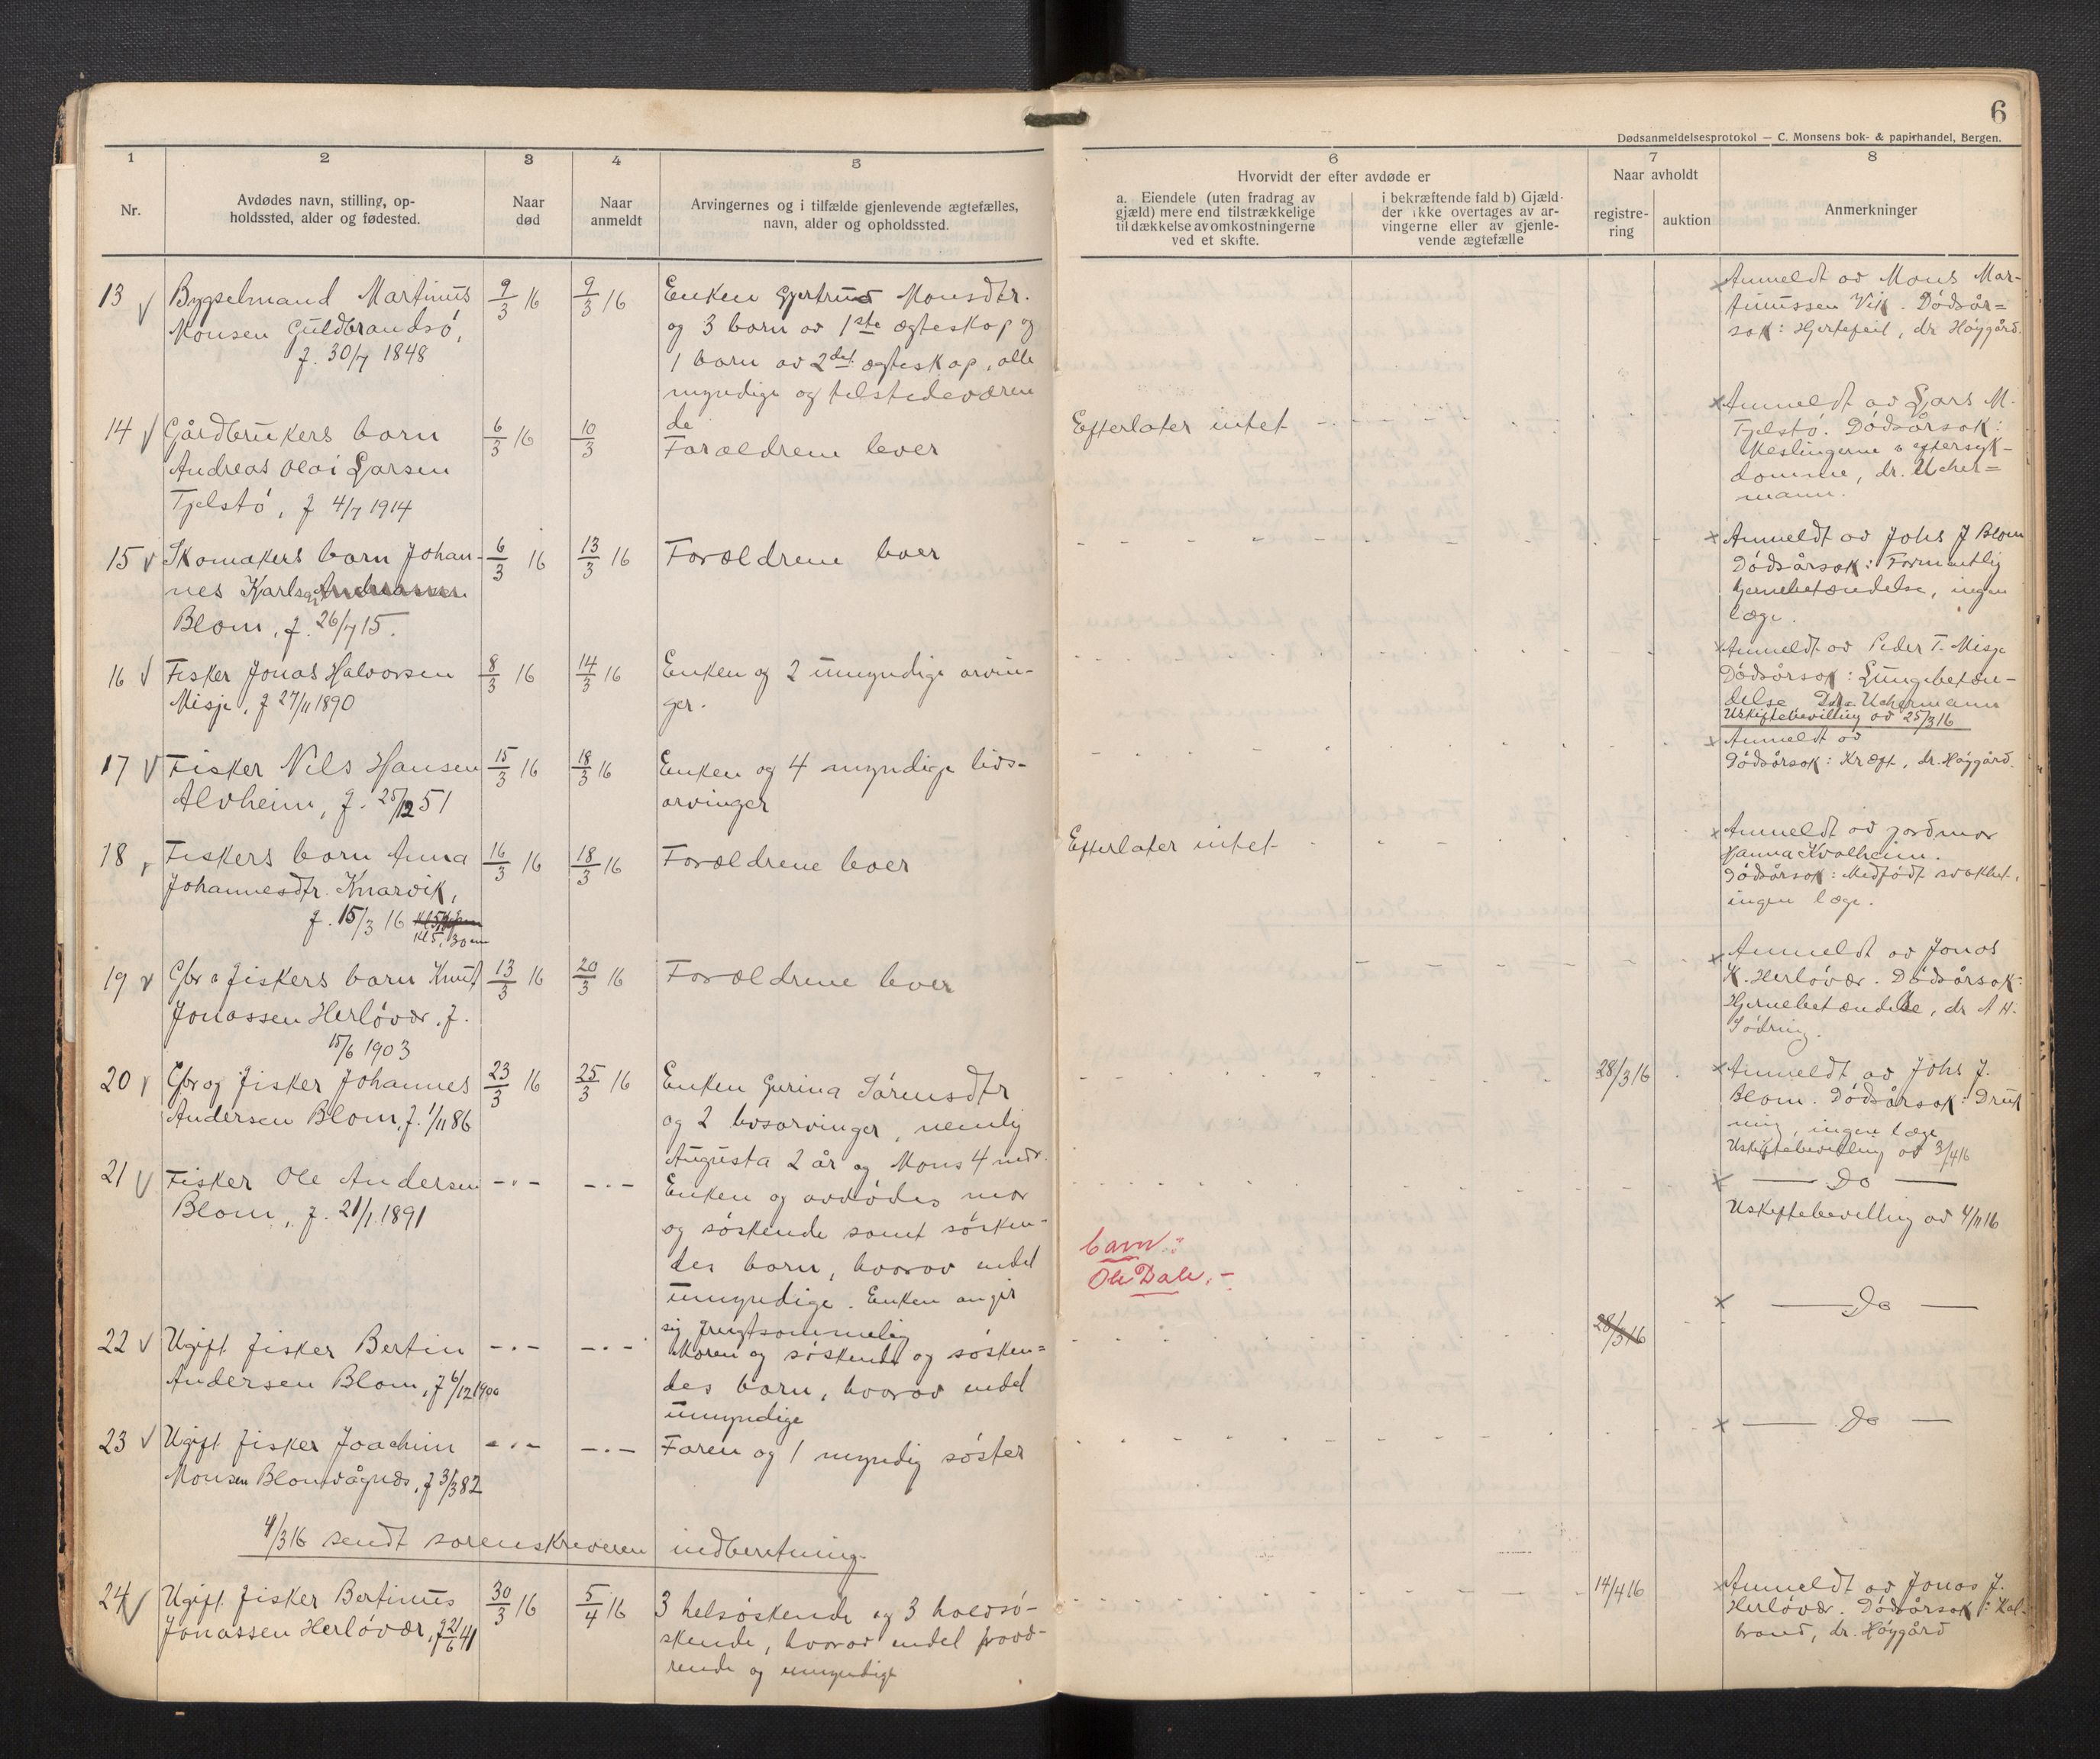 6
Dødsanmeldelsesprotokol — C. Monsens bok- & papirhandel, Bergen.
1
2
3
4
5
6
7
8
Nr.
Avdødes navn, stilling, op-
holdssted, alder og fødested.
Naar
død
Naar
anmeldt
Arvingernes og i tilfælde gjenlevende ægtefælles,
navn, alder og opholdssted.
Hvorvidt der efter avdøde er
a. Eiendele (uten fradrag av
gjæld) mere end tilstrækkelige
til dækkelse av omkostningerne
ved et skifte.
i bekræftende fald b) Gjæld-
der ikke overtages av ar-
vingerne eller av gjenle-
vende ægtefælle
Naar avholdt
registre-
ring
auktion
Anmerkninger
13 Bygselmand Martinus
Monsen Guldbrandsö,
f. 30/7 1848
9/3 16
9/3 16
Enken Gjertrud Monsdtr.
og 3 barn av 1ste ægteskap og
1 barn av 2det ægteskap, alle
myndige og tilstedeværen
de
Anmeldt av Mons Mar-
tinussen Vik. Dödsår=
sak: Hjertefeil, dr Höygård.
14 Gårdbrukers barn
Andreas Olai Larsen
Tjelstö, f 4/7 1914
6/3 16
10/3
Forældrene lever
Efterlater intet
Anmeldt av Lars M.
Tjelstö. Dödsårsak:
Meslingerne & eftersyk-
domme, dr. Ucher=
mann.
15 Skomakers barn Johan-
nes Karlsen
Blom, f. 26/7 15.
6/3 16
13/3 16
Forældrene lever
Anmeldt av Johs J Blom
Dödsårsak: Formentlig
hjernebetændelse, ingen
læge.
16 Fisker Jonas Halvorsen
Misje, f 27/11 1890
8/3 16
14/3 16
Enken og 2 umyndige arvin-
ger.
Anmeldt av Peder T. Misje
Dödsårsak: Lungebetæn-
delse Dr. Uchermann
Uskiftebevilling av 25/3 16
17 Fisker Nils Hansen
Alvheim, f. 25/12 51
15/3 16
18/3 16
Enken og 4 myndige livs-
arvinger
Anmeldt av
Dödsårsak: Kræft, dr. Höygård.
18 Fiskers barn Anna
Johannesdtr. Knarvik,
f. 15/3 16
Kl 5,30 em
16/3 16
18/3 16
Forældrene lever
Efterlater intet
Anmeldt av jordmor
Hanna Kvalheim.
Dödsårsak: Medfödt svakhet,
ingen læge.
19 Gbr & fiskers barn Knut
Jonassen Herlövær, f.
15/6 1903
13/3 16
20/3 16
Forældrene lever
Anmeldt av Jonas
K. Herlövær. Dödsårsak:
Hjernebetændelse, dr A H.
Södring.
20 Gbr og fisker Johannes
Andersen Blom, f. 1/11 86
23/3 16
25/3 16
Enken Gurina Sörensdtr
og 2 livsarvinger, nemlig
Augusta 2 år og Mons 4 mdr.
28/3 16
Anmeldt av Johs J.
Blom. Dödsårsak: Druk
ning, ingen læge
Uskiftebevilling av 3/4 16
21 Fisker Ole Andersen
Blom, f. 21/1 1891
- . -
- . -
Enken og avdödes mor
og söskende samt sösken-
des barn, hvorav endel
umyndige. Enken angir
sig frugtsommelig
barn:
Ole Dale. -
Do
Uskiftebevilling av 4/11 16
22 Ugift fisker Bertin
Andersen Blom, f 6/12 1900
- . -
- . -
Moren og söskende og sösken=
des barn, hvorav endel
umyndige
28/3 16
Do
23 Ugift fisker Joachim
Monsen Blomvågnes, f 3/3 82
- . -
- . -
Faren og 1 myndig söster
Do
4/3 16 sendt sorenskriveren indberetning.
24 Ugift fisker Bertinus
Jonassen Herlövær, f 21/6 41
30/3 16
5/4 16
3 helsöskende og 3 halvsö-
skende, hvorav endel fravæ-
rende og umyndige
14/4 16
Anmeldt av Jonas J.
Herlövær. Dödsårsak: Kol-
brand, dr. Höygård